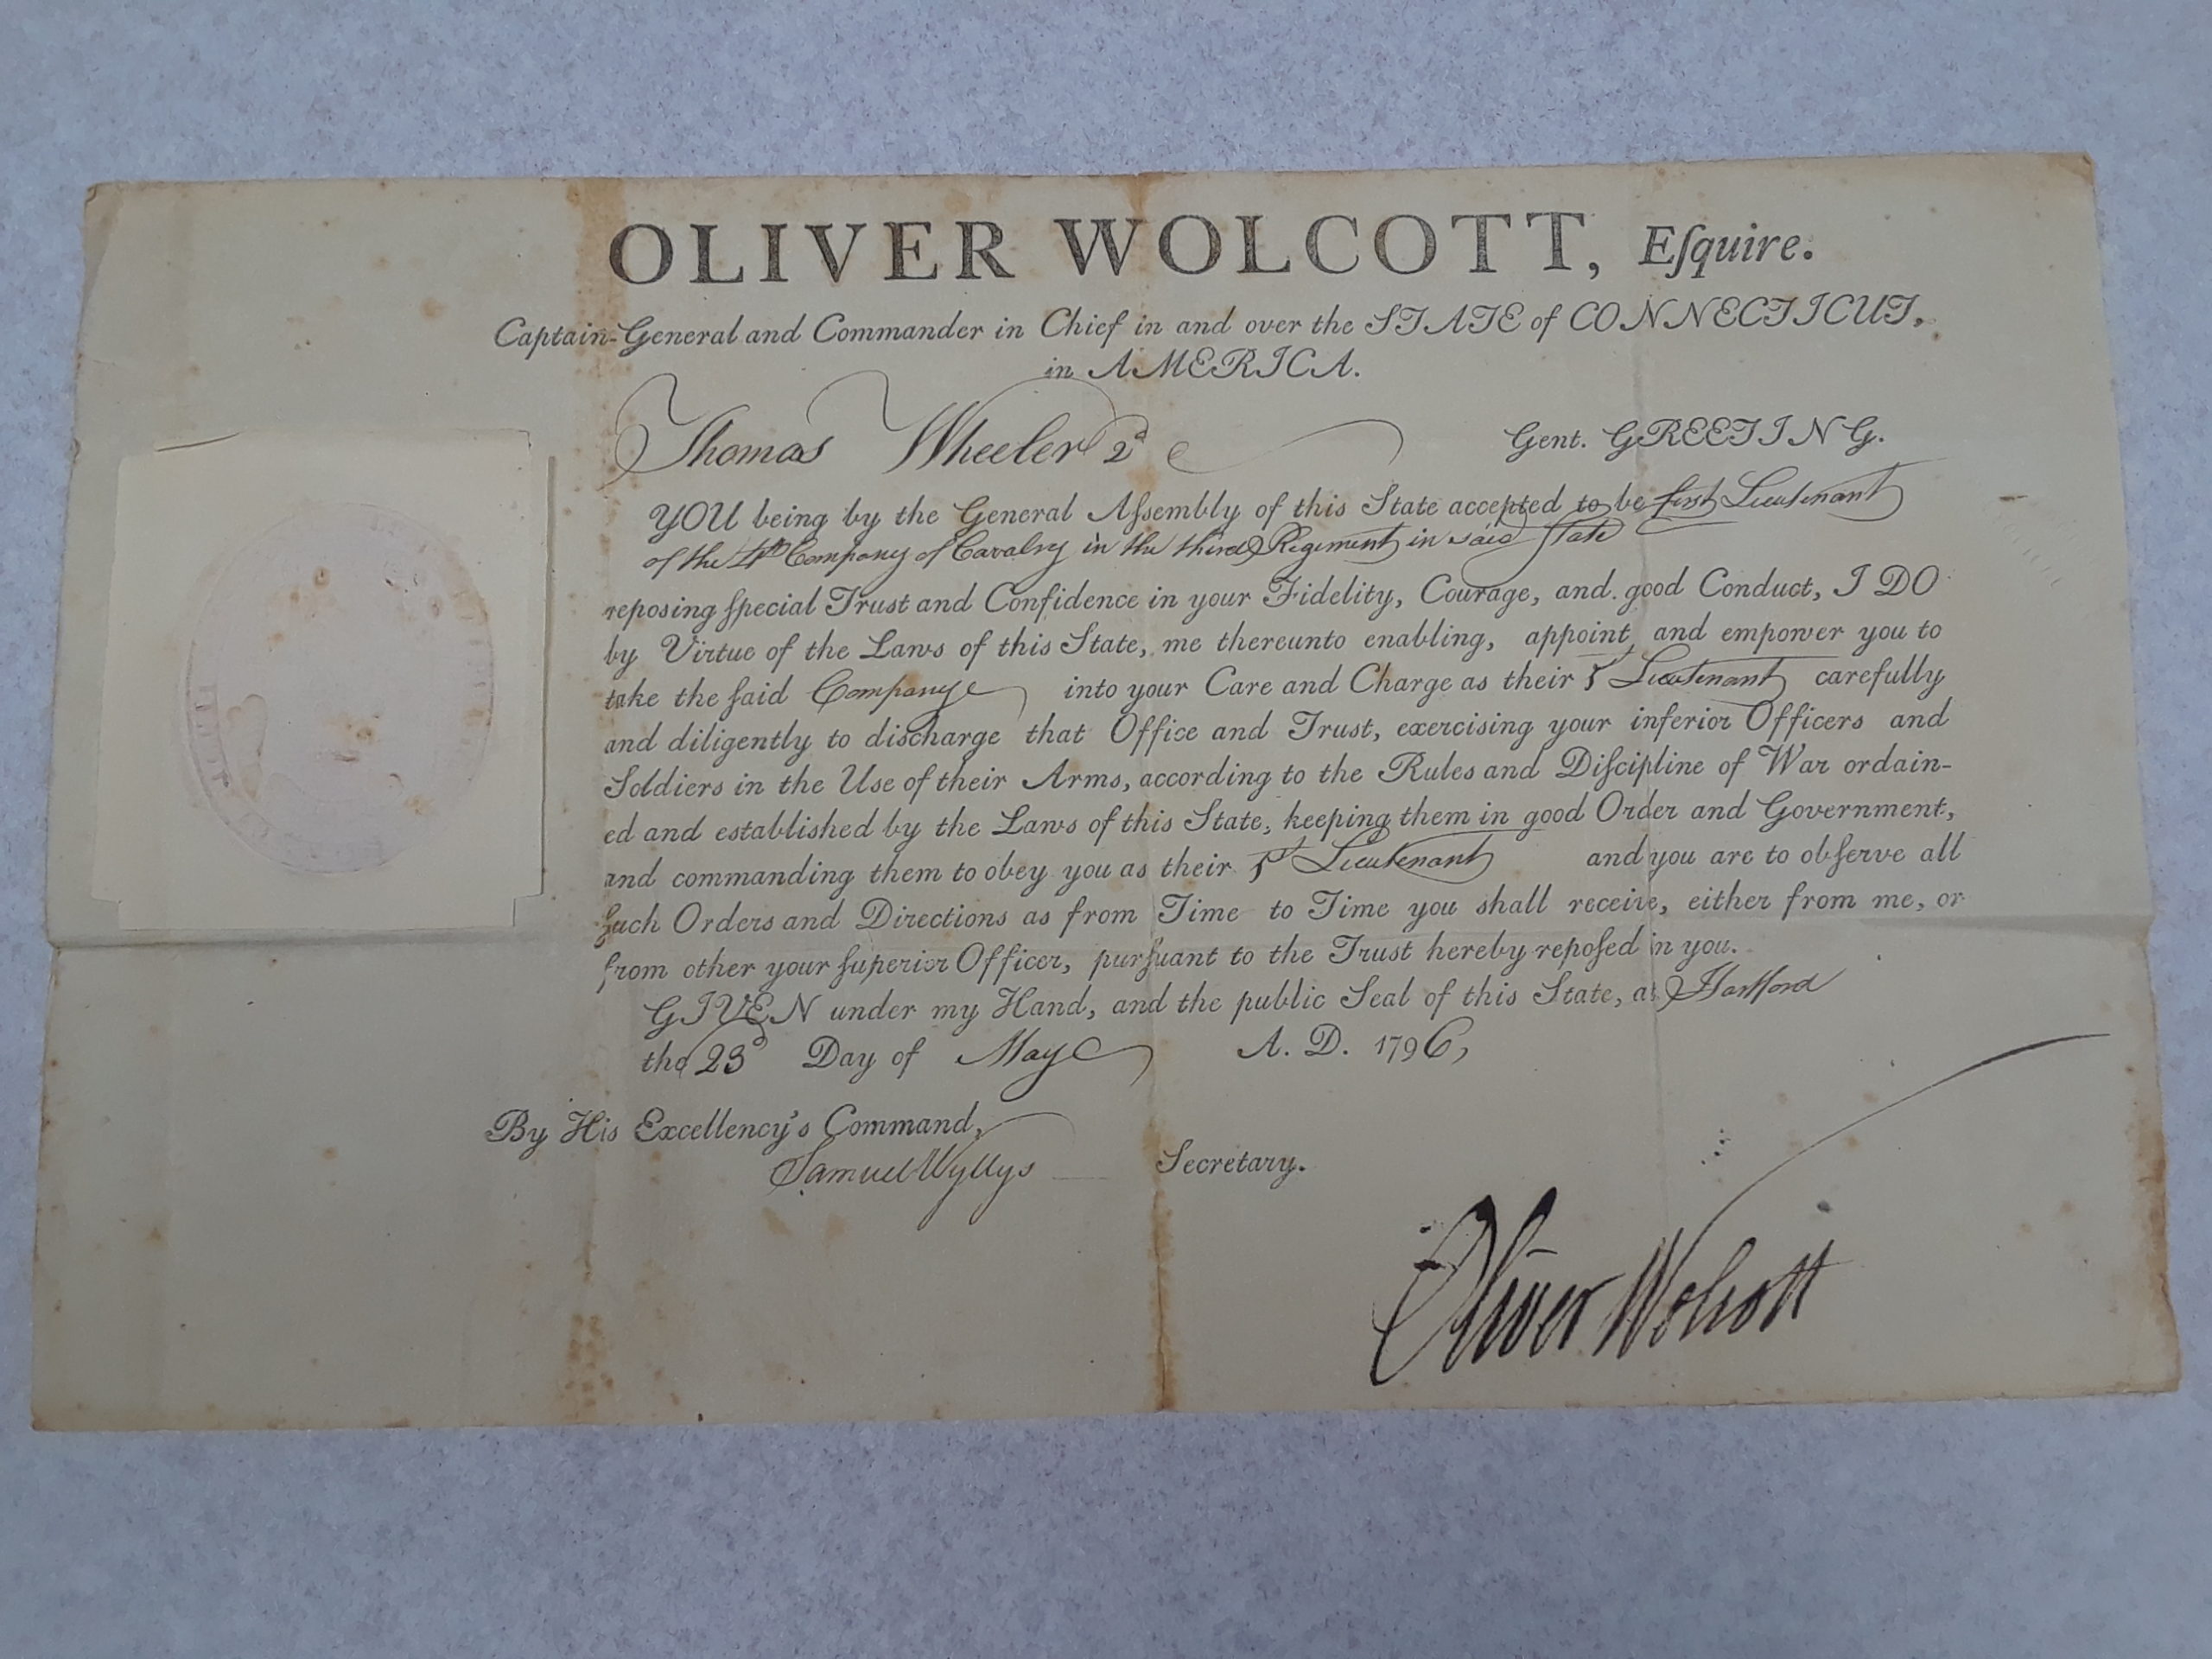 OLIVER WOLCOTT, Eſquire.
Captain-General and Commander in Chief in and over the STATE of CONNECTICUT,
in AMERICA.
Thomas Wheeler 2d Gent. GREETING.
YOU being by the General Aſsembly of this State accepted to be first Lieutenant
of the 4th Company of Cavalry in the third Regiment in said State
reposing ſpecial Trust and Confidence in your Fidelity, Courage, and good Conduct, I DO
by Virtue of the Laws of this State, me thereunto enabling, appoint and empower you to
take the ſaid Company into your Care and Charge as their 1st Lieutenant carefully
and diligently to discharge that Office and Trust, exercising your inferior Officers and
Soldiers in the Use of their Arms, according to the Rules and Diſcipline of War ordain-
ed and established by the Laws of this State, keeping them in good Order and Government,
and commanding them to obey you as their 1st Lieutenant and you are to obſerve all
ſuch Orders and Directions as from Time to Time you shall receive, either from me, or
from other your ſuperior Officer, purſuant to the Trust hereby repoſed in you.
GIVEN under my Hand, and the public Seal of this State, at Hartford
the 23d Day of May A. D. 1796,
By His Excellency's Command,
Samuel Wyllys Secretary.
Oliver Wolcott